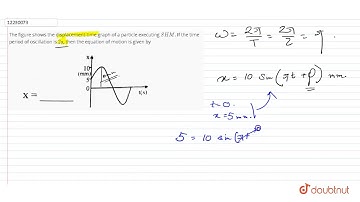 12230073
The figure shows the displacement time graph of a particle executing S.H.M. If the time
period of oscillation is 2s, then the equation of motion is given by
x = ______
x
10
(mm)
5
0
t(s)
ω = 2π/T = 2π/2 = π.
x = 10 Sin (πt + φ) mm.
t=0.
x = 5 mm.
5 = 10 sin (πt
doubtnut